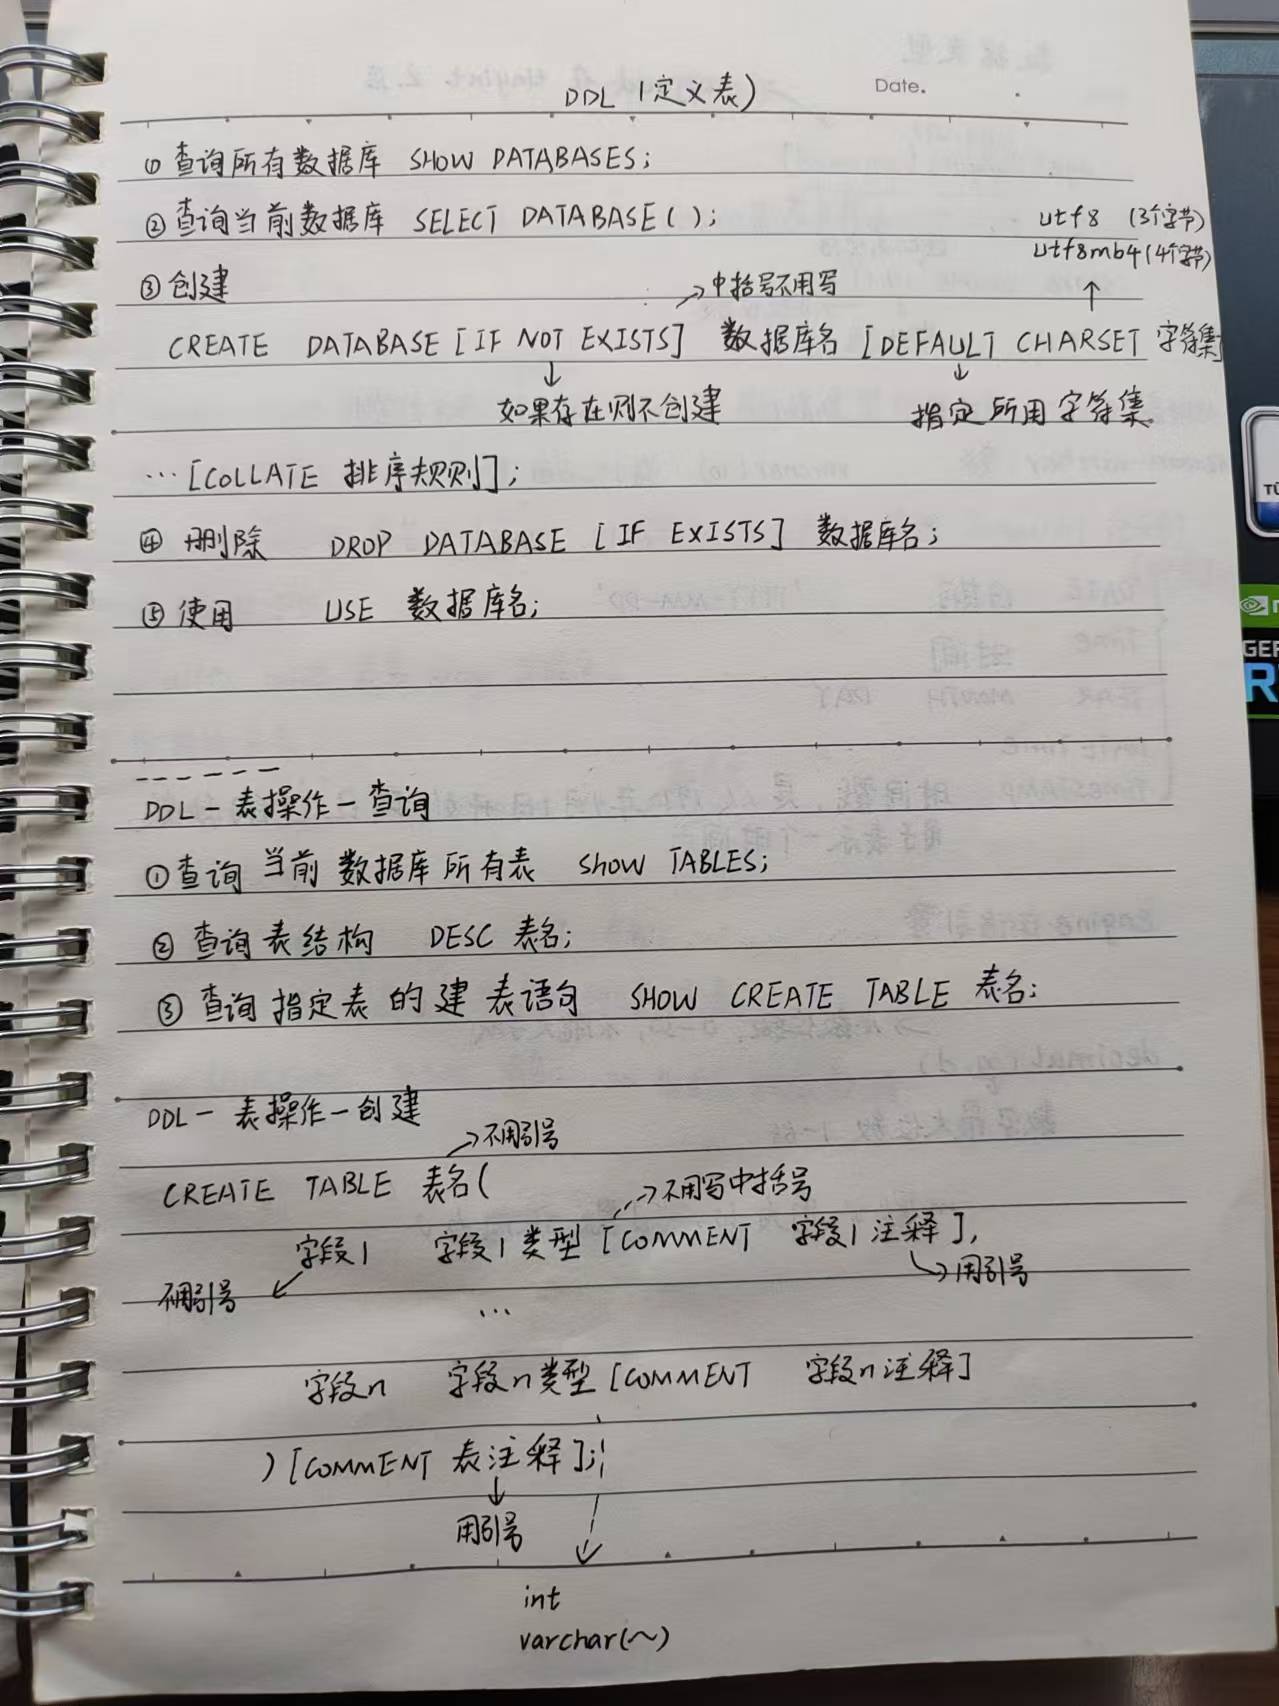 Date.
DDL (定义表)
① 查询所有数据库 SHOW DATABASES;
② 查询当前数据库 SELECT DATABASE();
utf8 (3个字节)
utf8mb4 (4个字节)
③ 创建
→中括号不用写
CREATE DATABASE [IF NOT EXISTS] 数据库名 [DEFAULT CHARSET 字符集]
如果存在则不创建
指定所用字符集
… [COLLATE 排序规则];
④ 删除 DROP DATABASE [IF EXISTS] 数据库名;
⑤ 使用 USE 数据库名;
DDL-表操作-查询
① 查询当前数据库所有表 show TABLES;
② 查询表结构 DESC 表名;
③ 查询指定表的建表语句 SHOW CREATE TABLE 表名;
DDL-表操作-创建
→不用引号
CREATE TABLE 表名(
→不用写中括号
字段1 字段1类型 [COMMENT 字段1注释],
不用引号
→用引号
…
字段n 字段n类型 [COMMENT 字段n注释]
) [COMMENT 表注释];
用引号
int
varchar(~)